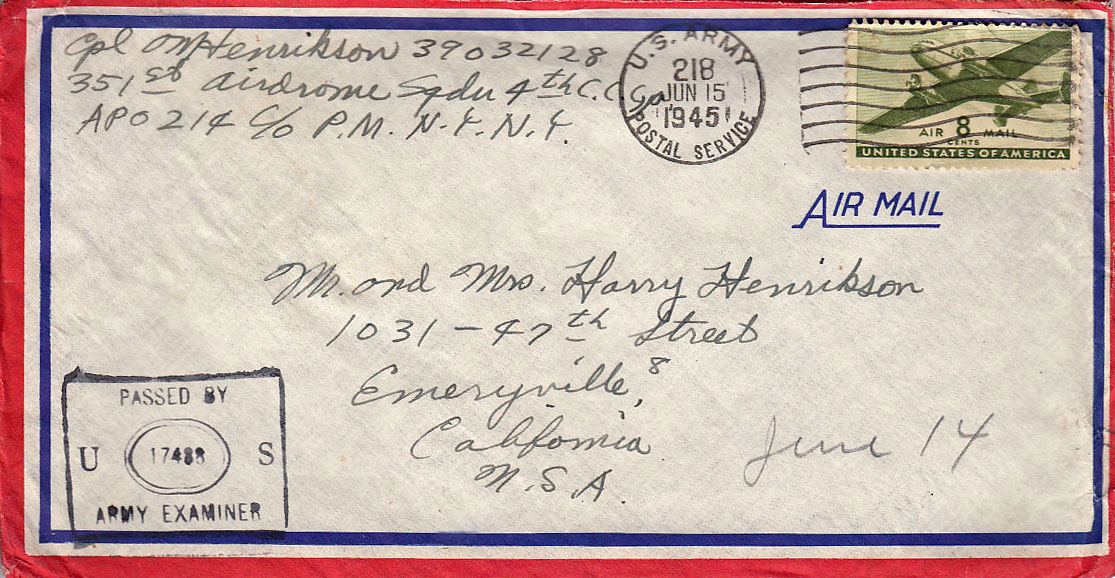 Cpl OM Henrikson 39032128
351st Airdrome Sqdn 4th C.C. Ga.
APO 214 C/o P.M. N.Y. N.Y.
U.S. ARMY
218
JUN 15
1945
POSTAL SERVICE
AIR 8 MAIL
CENTS
UNITED STATES OF AMERICA
AIR MAIL
Mr. and Mrs. Harry Henrikson
1031-47th Street
Emeryville, 8
California
U.S.A.
June 14
PASSED BY
U 17488 S
ARMY EXAMINER